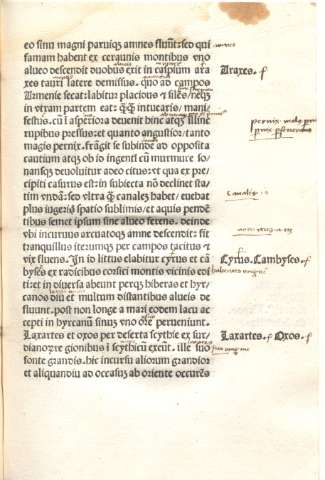 eo sinu magni paruiq; amnes fluūt: sed qui
famam habent ex ceraunis montibus vno
alueo descendit duobus exit in caspium ara
xes tauri latere demissus. quo ad campos
Armenie secat: labitur placidus & silēs: neq;
in vtram partem eat: q̄q̄ intuearis: mani
festus. cū ī asperiora deuenit binc atq; illinc
rupibus pressus: et quanto angustior: tanto
magis pernix. frāgit se subinde ad opposita
cautium atq; ob id ingenti cū murmure so-
nansq; deuoluitur adeo citus: vt qua ex pre
cipiti casurus est in subiecta nō declinet sta
tim vndā: sed vltra q̄ canalez habet: euebat
plus iugeris spatio sublimis/ et aquis penden
tibus semet ipsum sine alueo ferens. deinde
vbi incuruus arcuatoq; amne descendit: fit
tranquillus iterumq; per campos tacitus et
vix fluens. In id littus elabitur cyrus et cā
byses ex radicibus coraxici montis vicinis edi
ti: et in diuersa abeunt perq; hiberas et hyr/
canos diu et multum distantibus alueis de
fluunt. post non longe a mari eodem lacu ac
cepti in hyrcanū sinuz vno ore perueniunt.
Laxartes et oxos per deserta scythie ex sur/
dianorre gionibus ī scythicū exeūt. ille suo
fonte grandis. hic incursu aliorum grandior
et aliquandiu ad occasuz ab oriente occurrēs
Araxes.
Canalez
Cyrus. Cambyses.
Laxartes. Oxos.